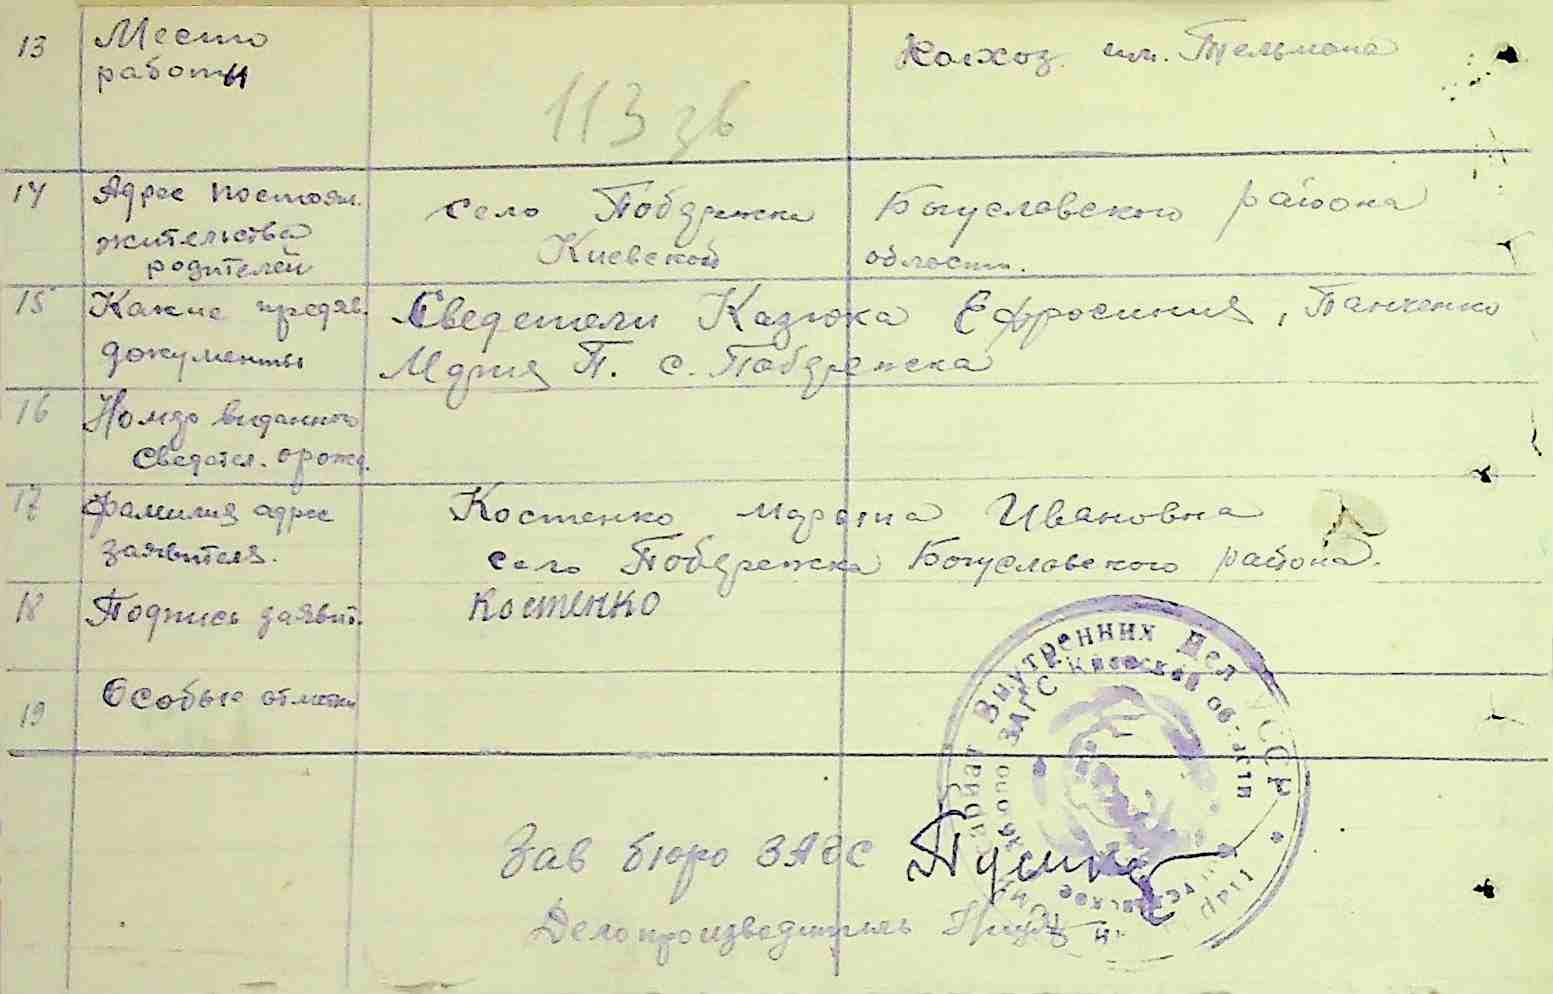 13 Место Колхоз им. Тельмана
работы
113 зв
14 Адрес постоян. село Побережка Богуславского района
жительства Киевской области.
родителей
15 Какие предяв. Сведетели Казюка Ефросиния, Панченко
документы Мария П. с. Побережка
16 Номер виданного
сведетел. орожд.
17 Фамилия адрес Костенко Марина Ивановна
заявителя. село Побережка Богуславского района.
18 Подпись заявит. Костенко
19 Особые отметки
Внутренних Дел УССР
ЗАГС Киевской области
Зав бюро ЗАГС
Делопроизводитель